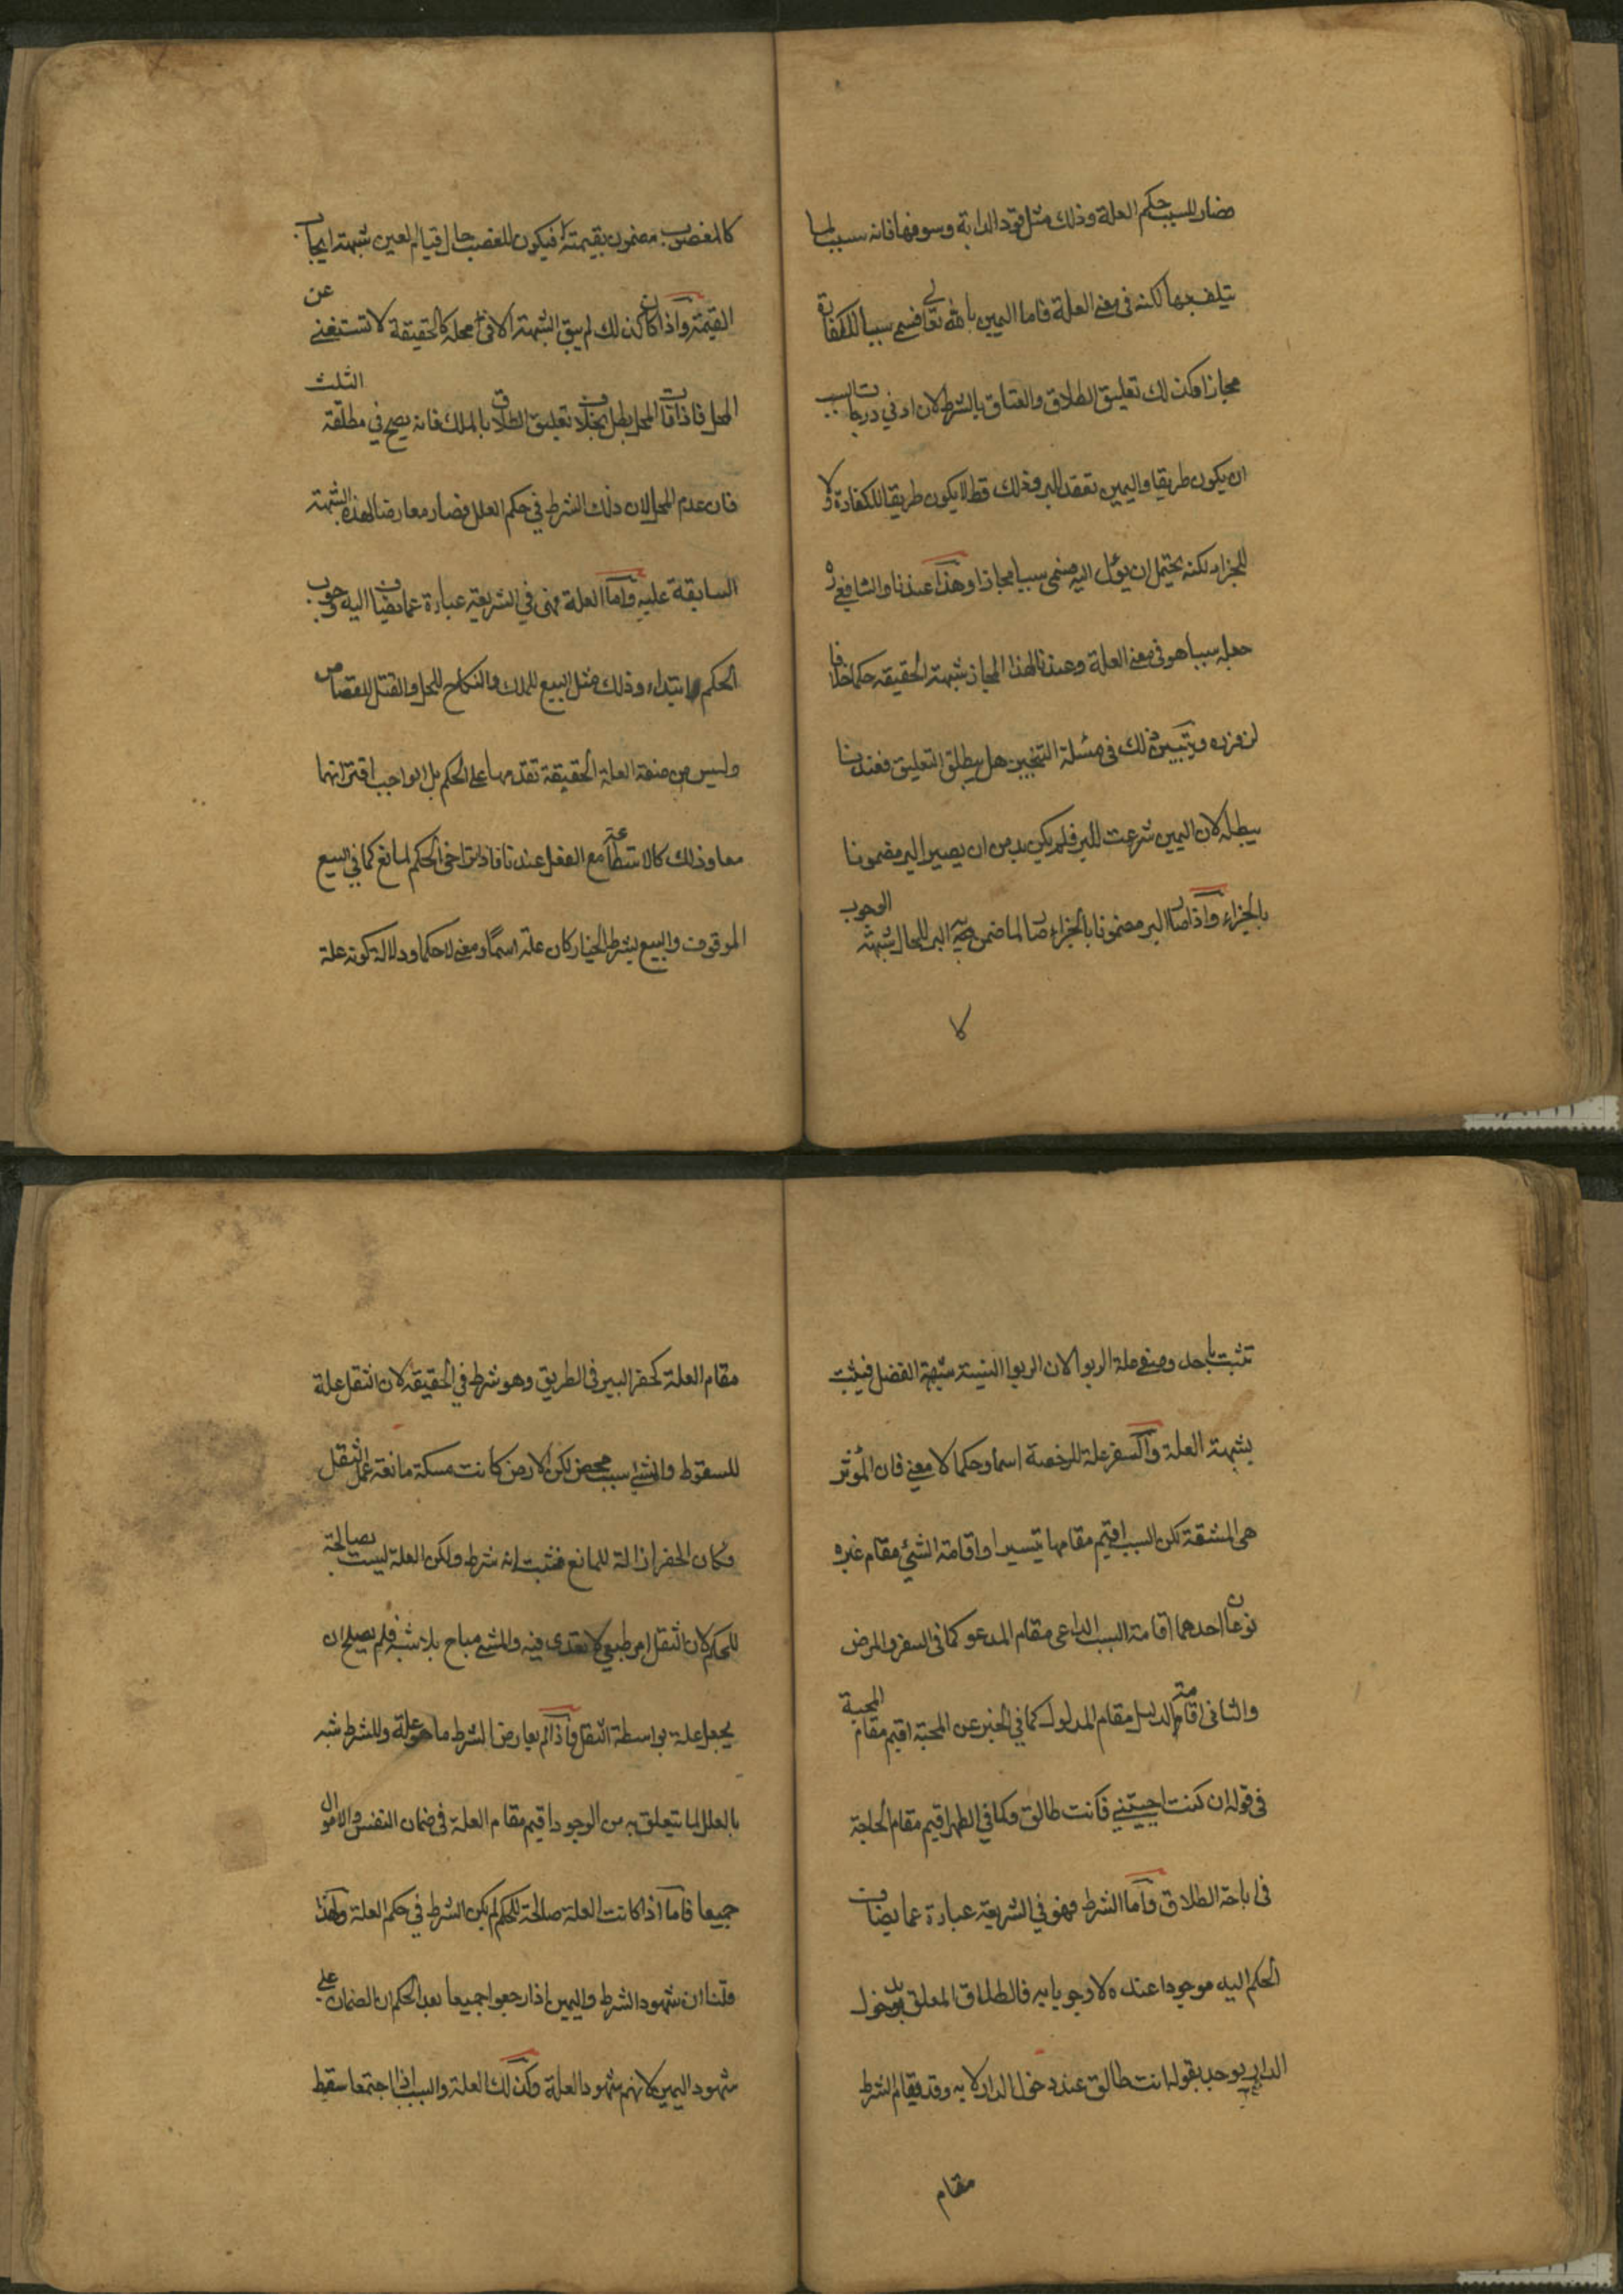 فصار للسبب حكم العلة وذلك مثل قود الدابة وسوقها فانه سبب لما
يتلف بها لكنه في معنى العلة فاما اليمين بالله تعالى فسمي سببا للكفارة
مجازا وكذلك تعليق الطلاق والعتاق بالشرط لان ادنى درجات السبب
ان يكون طريقا واليمين تعقد للبر وذلك قط لا يكون طريقا للكفارة ولا
للجزاء لكنه يحتمل ان يؤل اليه فسمي سببا مجازا وهذا عندنا والشافعي ره
جعله سببا هو في معنى العلة وعندنا لهذا المجاز شبهة الحقيقة حكما خلافا
لزفر ره ويتبين ذلك في مسئلة التنجيز هل يبطل التعليق فعندنا
يبطله لان اليمين شرعت للبر فلم يكن بد من ان يصير البر مضمونا
بالجزاء واذا صار البر مضمونا بالجزاء صار لما ضمن به البر للحال شبهة الوجوب
كا
كالمغصوب مضمون بقيمته فيكون للغصب حال قيام العين شبهة ايجاب
القيمة واذا كان كذلك لم يبق الشبهة الا في محله كالحقيقة لا تستغني عن
المحل فاذا فات المحل بطل بخلاف تعليق الطلاق بالملك فانه يصح في مطلقة الثلث
فان عدم المحل لان ذلك الشرط في حكم العلل فصار معارضا لهذه الشبهة
السابقة عليه واما العلة فهي في الشريعة عبارة عما يضاف اليه وجوب
الحكم ابتداء وذلك مثل البيع للملك والنكاح للحل والقتل للقصاص
وليس من صفة العلة الحقيقة تقدمها على الحكم بل الواجب اقترانهما
معا وذلك كالاستطاعة مع الفعل عندنا فاذا تراخى الحكم لمانع كما في البيع
الموقوف والبيع بشرط الخيار كان علة اسما ومعنى لا حكما ودلالة كونه علة
تثبت باحد وصفي علة الربوا لان الربوا النسيئة شبهة الفضل فيثبت
بشبهة العلة والسفر علة للرخصة اسما وحكما لا معنى فان المؤثر
هي المشقة لكن السبب اقيم مقامها تيسيرا واقامة الشيئ مقام غيره
نوعان احدهما اقامة السبب الداعي مقام المدعو كما في السفر والمرض
والثاني اقامة الدليل مقام المدلول كما في الخبر عن المحبة اقيم مقام المحبة
في قوله ان كنت احببتني فانت طالق وكما في الطهر اقيم مقام الحاجة
في اباحة الطلاق واما الشرط فهو في الشريعة عبارة عما يضاف
الحكم اليه موجودا عنده لا وجوبا به فالطلاق المعلق بدخول
الدار يوجد بقوله انت طالق عند دخول الدار لا به وقد يقام الشرط
مقام
مقام العلة كحفر البير في الطريق وهو شرط في الحقيقة لان الثقل علة
للسقوط والمشي سبب محض لكن الارض كانت مسكة مانعة عمل الثقل
وكان الحفر ازالة للمانع فثبت انه شرط ولكن العلة ليست بصالحة
للحكم لان الثقل امر طبيعي لا تعدى فيه والمشي مباح بلا شبه فلم يصلح ان
يجعل علة بواسطة الثقل واذا لم يعارض الشرط ما هو علة وللشرط شبه
بالعلل لما يتعلق به من الوجود اقيم مقام العلة في ضمان النفس والاموال
جميعا فاما اذا كانت العلة صالحة للحكم لم يكن الشرط في حكم العلة ولهذا
قلنا ان شهود الشرط واليمين اذا رجعوا جميعا بعد الحكم ان الضمان على
شهود اليمين لانهم شهود العلة وكذلك العلة والسبب اذا اجتمعا سقط